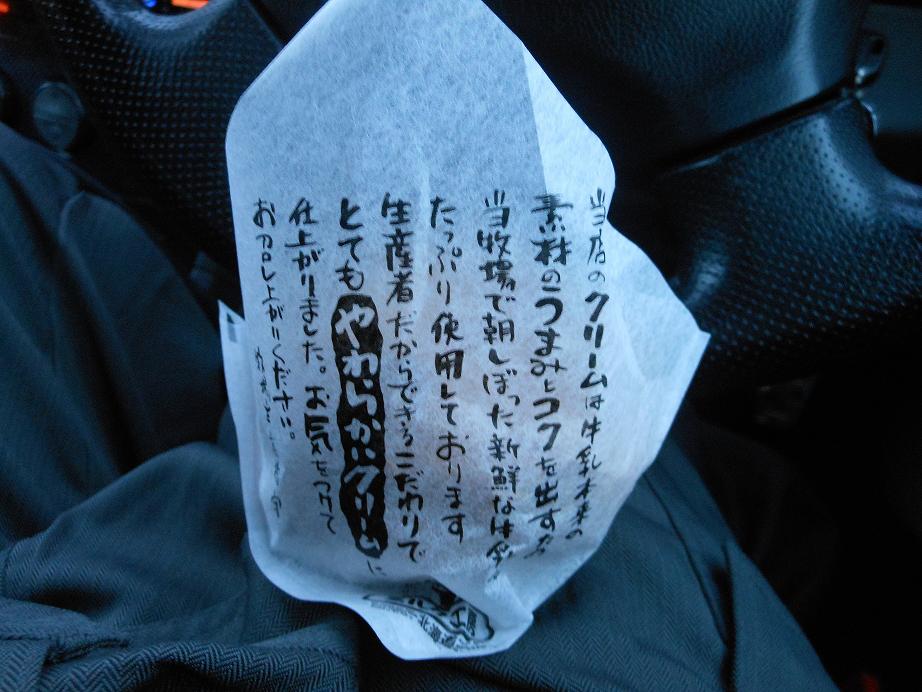 当店のクリームは牛乳本来の
素材のうまみとコクを出すため
当牧場で朝しぼった新鮮な牛乳を
たっぷり使用しております
生産者だからできるこだわりで
とてもやわらかいクリームに
仕上がりました。お気をつけて
お召し上がりください。
北海道